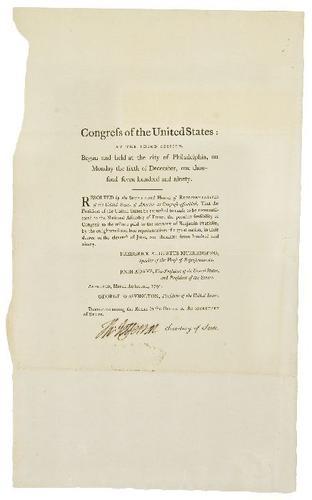 Congreſs of the United States:
AT THE THIRD SESSION,
Begun and held at the city of Philadelphia, on
Monday the ſixth of December, one thou-
ſand ſeven hundred and ninety.
RESOLVED by the SENATE and HOUSE of REPRESENTATIVES
of the United States of America in Congreſs aſſembled, That the
Preſident of the United States be requeſted to cauſe to be communicated
to the National Aſſembly of France the peculiar ſenſibility of
Congreſs to the tribute paid to the memory of Benjamin Franklin,
by the enlightened and free repreſentatives of a great nation, in their
decree of the eleventh of June, one thouſand ſeven hundred and
ninety.
FREDERICK AUGUSTUS MUHLENBERG,
Speaker of the Houſe of Repreſentatives.
JOHN ADAMS, Vice-Preſident of the United States,
and Preſident of the Senate.
APPROVED, March 1791.
GEORGE WASHINGTON, Preſident of the United States.
among the ROLLS in the OFFICE of the SECRETARY
of STATE.
Th: Jefferson Secretary of State.